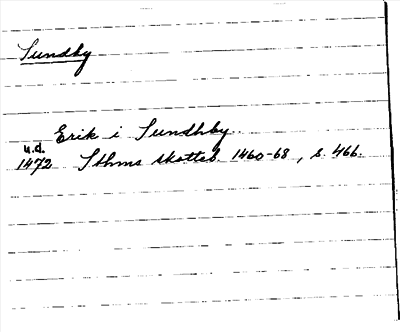 Sundby
Erik i Sundhby.
u.d.
1472 Sthms skatteb. 1460-68, s. 466.